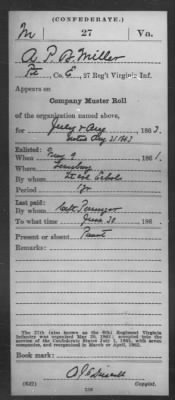 (CONFEDERATE.)
M 27 Va.
A. P. B. Miller
Pt, Co. E, 27 Reg't Virginia Inf.
Appears on
Company Muster Roll
of the organization named above,
for July & Aug, 1863.
dated Aug. 31 1863
Enlisted:
When May 9, 1861.
Where Lewisburg
By whom
Period 1 yr.
Last paid:
By whom Capt.
To what time June 30, 186 .
Present or absent Present
Remarks:
The 27th (also known as the 6th) Regiment Virginia
Infantry was organized May 30, 1861; accepted into the
service of the Confederate States July 1, 1861, with seven
companies, and reorganized in March or April, 1862.
Book mark:
(642) Copyist.